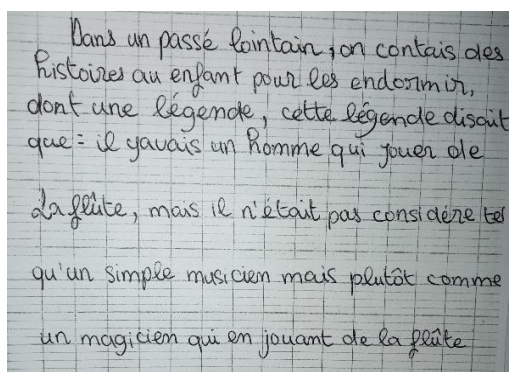 Dans un passé lointain, on contais des
histoires au enfant pour les endormir,
dont une légende, cette légende disait
que : il yavais un homme qui jouer de
la flûte, mais il n'était pas considère tel
qu'un simple musicien mais plutôt comme
un magicien qui en jouant de la flûte